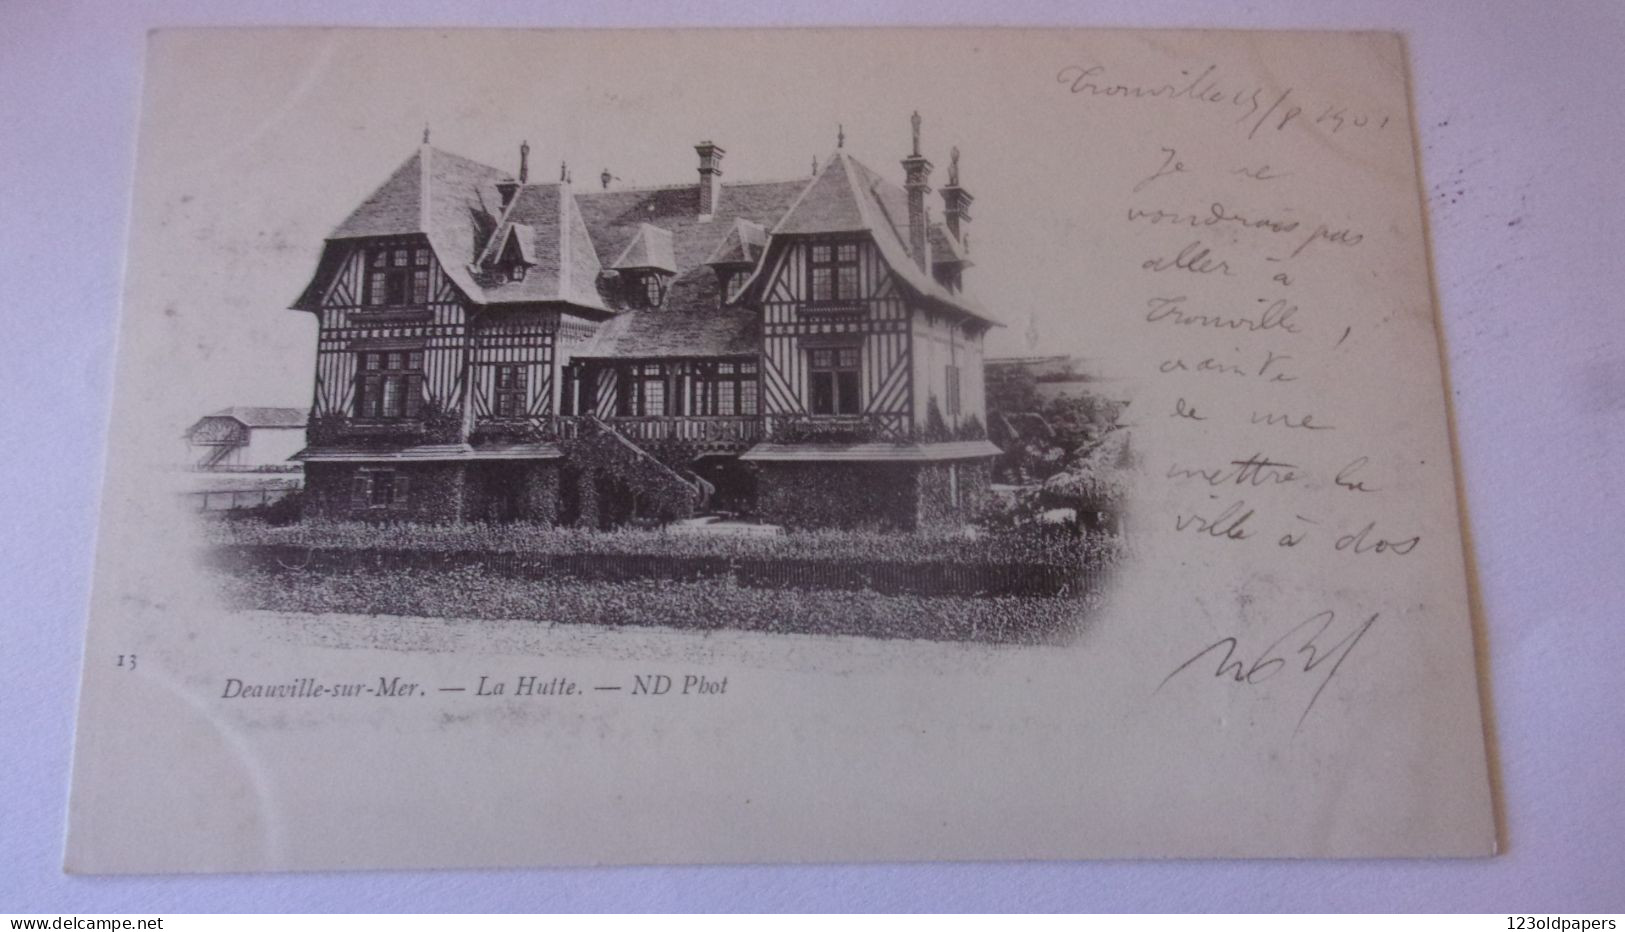 Trouville 15/8 1901
Je ne
voudrais pas
aller à
Trouville,
crainte
de me
mettre la
ville à dos
13
Deauville-sur-Mer. — La Hutte. — ND Phot
delcampe.net
123oldpapers